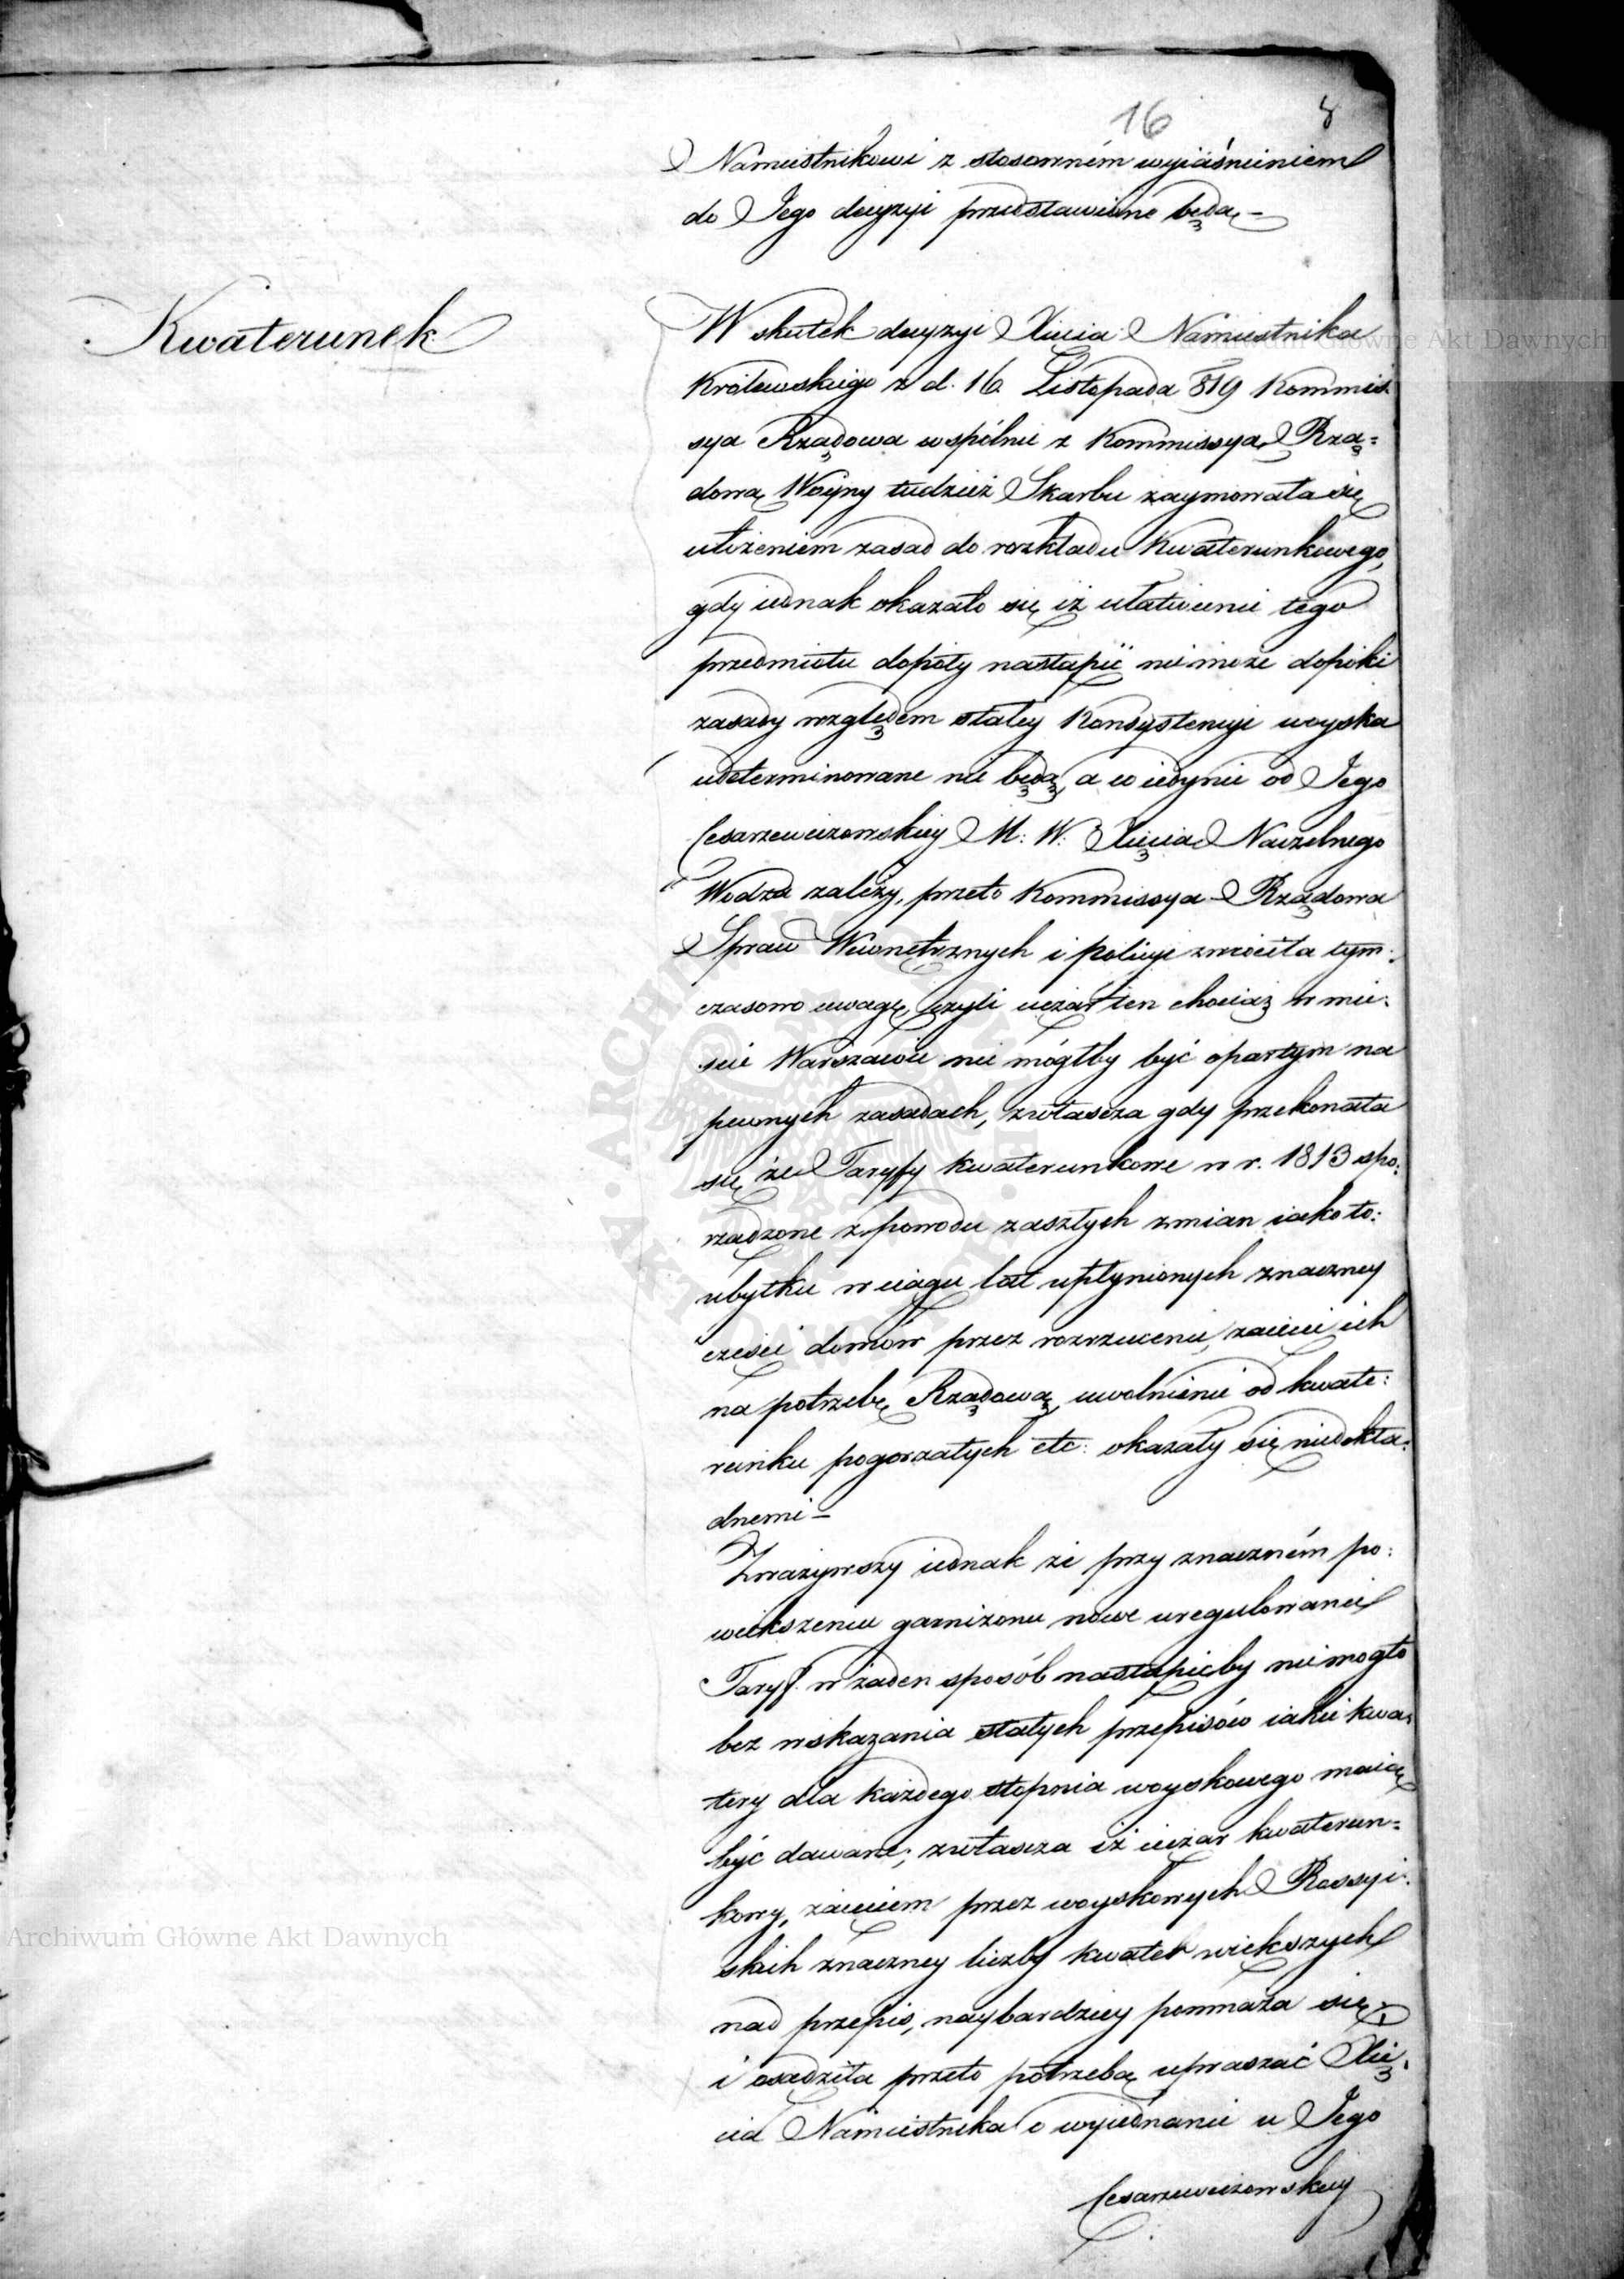 16 8
Namiestnikowi z stosowném wyiaśnieniem
do Jego decyzyi przedstawione będą –
Kwaterunek
W skutek decyzyi Xięcia Namiestnika
Królewskiego z d. 16. Listopada 819 Kommis
sya Rządowa wspólnie z Kommissyą Rzą=
dową Woyny tudzież Skarbu zaymowała się
ułożeniem zasad do rozkładu Kwaterunkowego,
gdy iednak okazało się iż ułatwienie tego
przedmiotu dopóty nastąpić nie może dopóki
zasady względem stałey Konsystencyi woyska
udeterminowane nie będą, a to iedynie od Jego
Cesarzewiczowskiey M: W: Xięcia Naczelnego
Wodza zależy, przeto Kommissya Rządowa
Spraw Wewnętrznych i policyi zwróciła tym:
czasowo uwagę, czyli ciężar ten chociaż w mie:
scie Warszawie nie mógłby być opartym na
pewnych zasadach, zwłaszcza gdy przekonała
się że Taryffy kwaterunkowe w r. 1813 spo:
rządzone z powodu zaszłych zmian iako to:
ubytku w ciągu lat upłynionych znaczney
części domów przez rozrzucenie, zaięcie ich
na potrzebę Rządową, uwolnienie od kwate:
runku pogorzałych etc: okazały się niedokła:
dnemi –
Zważywszy iednak że przy znaczném po:
większeniu garnizonu nowe uregulowanie
Taryff w żaden sposób nastąpićby nie mogło
bez wskazania stałych przepisów iakie kwa:
tery dla każdego stopnia woyskowego maią
być dawane; zwłaszcza iż ciężar kwaterun=
kowy, zaięciem przez woyskowych Rossyi:
skich znaczney liczby kwater większych
nad przepis, naybardziey pomnaża się
i osądziła przeto potrzebą upraszać Xię:
cia Namiestnika o wyiednanie u Jego
Cesarzewiczowskiey
Archiwum Główne Akt Dawnych
Archiwum Główne Akt Dawnych
ARCHIWUM GŁÓWNE AKT DAWNYCH